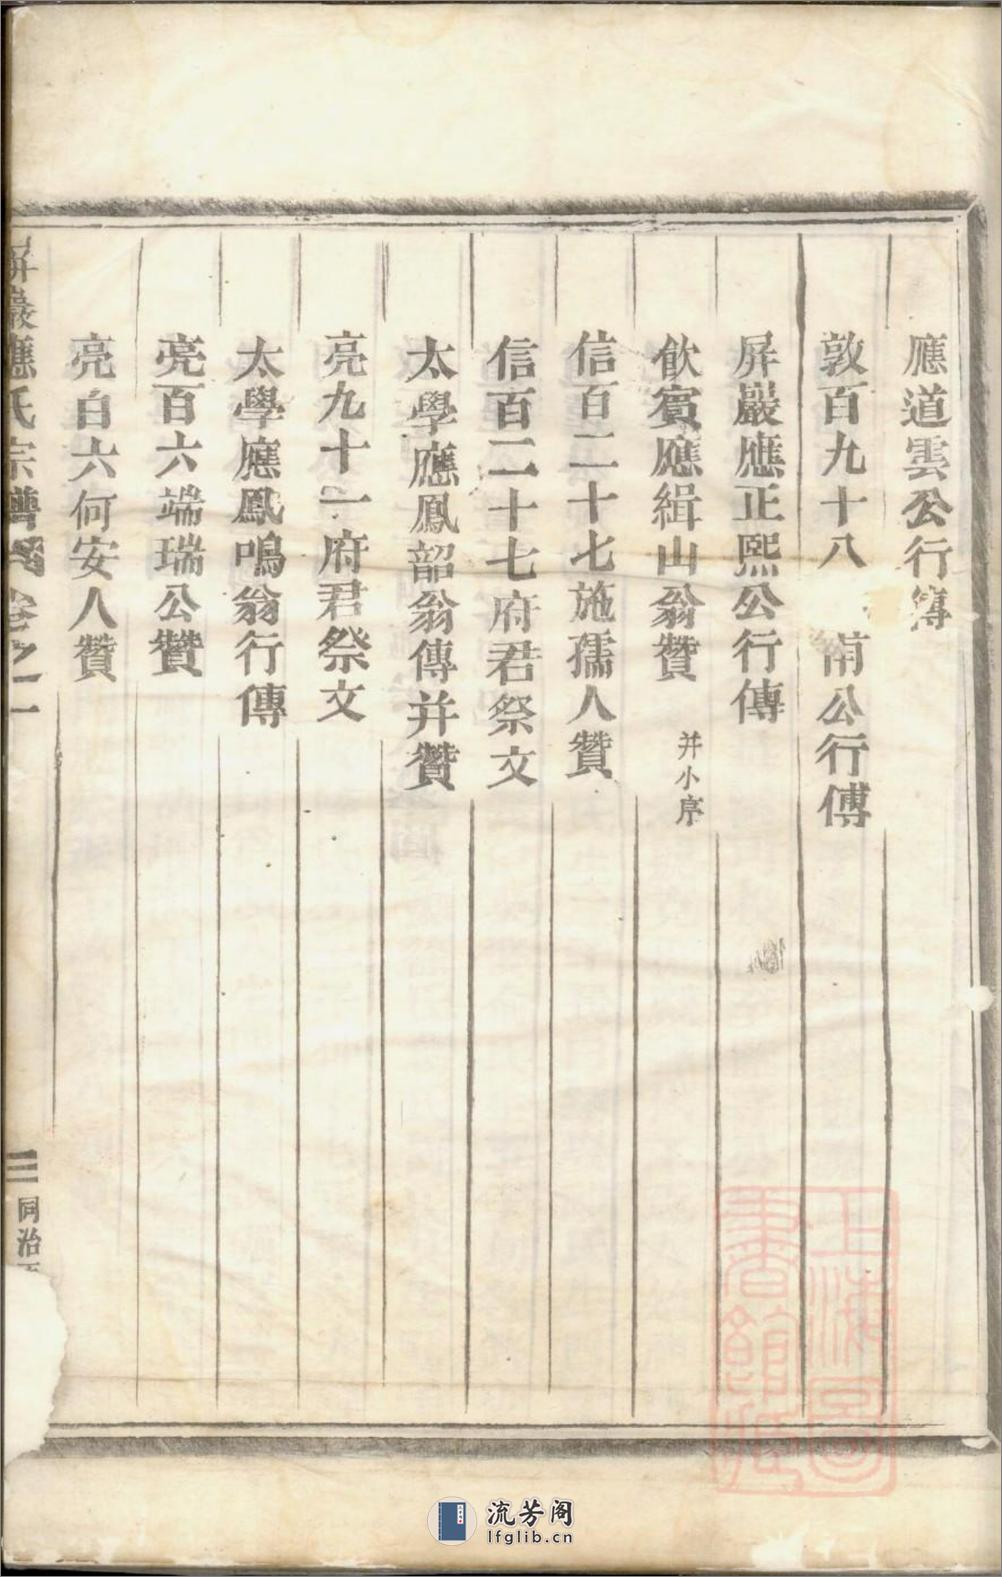 應道雲公行簿
敦百九十八 南公行傳
屏嚴應正熙公行傳
飲賓應緝山翁贊 并小序
信百二十七施孺人贊
信百二十七府君祭文
太學應鳳韶翁傳并贊
亮九十一府君祭文
太學應鳳鳴翁行傳
亮百六端瑞公贊
亮百六何安人贊
屏巖應氏宗譜 卷之一
三 同治
上海圖書館藏
流芳阁
lfglib.cn